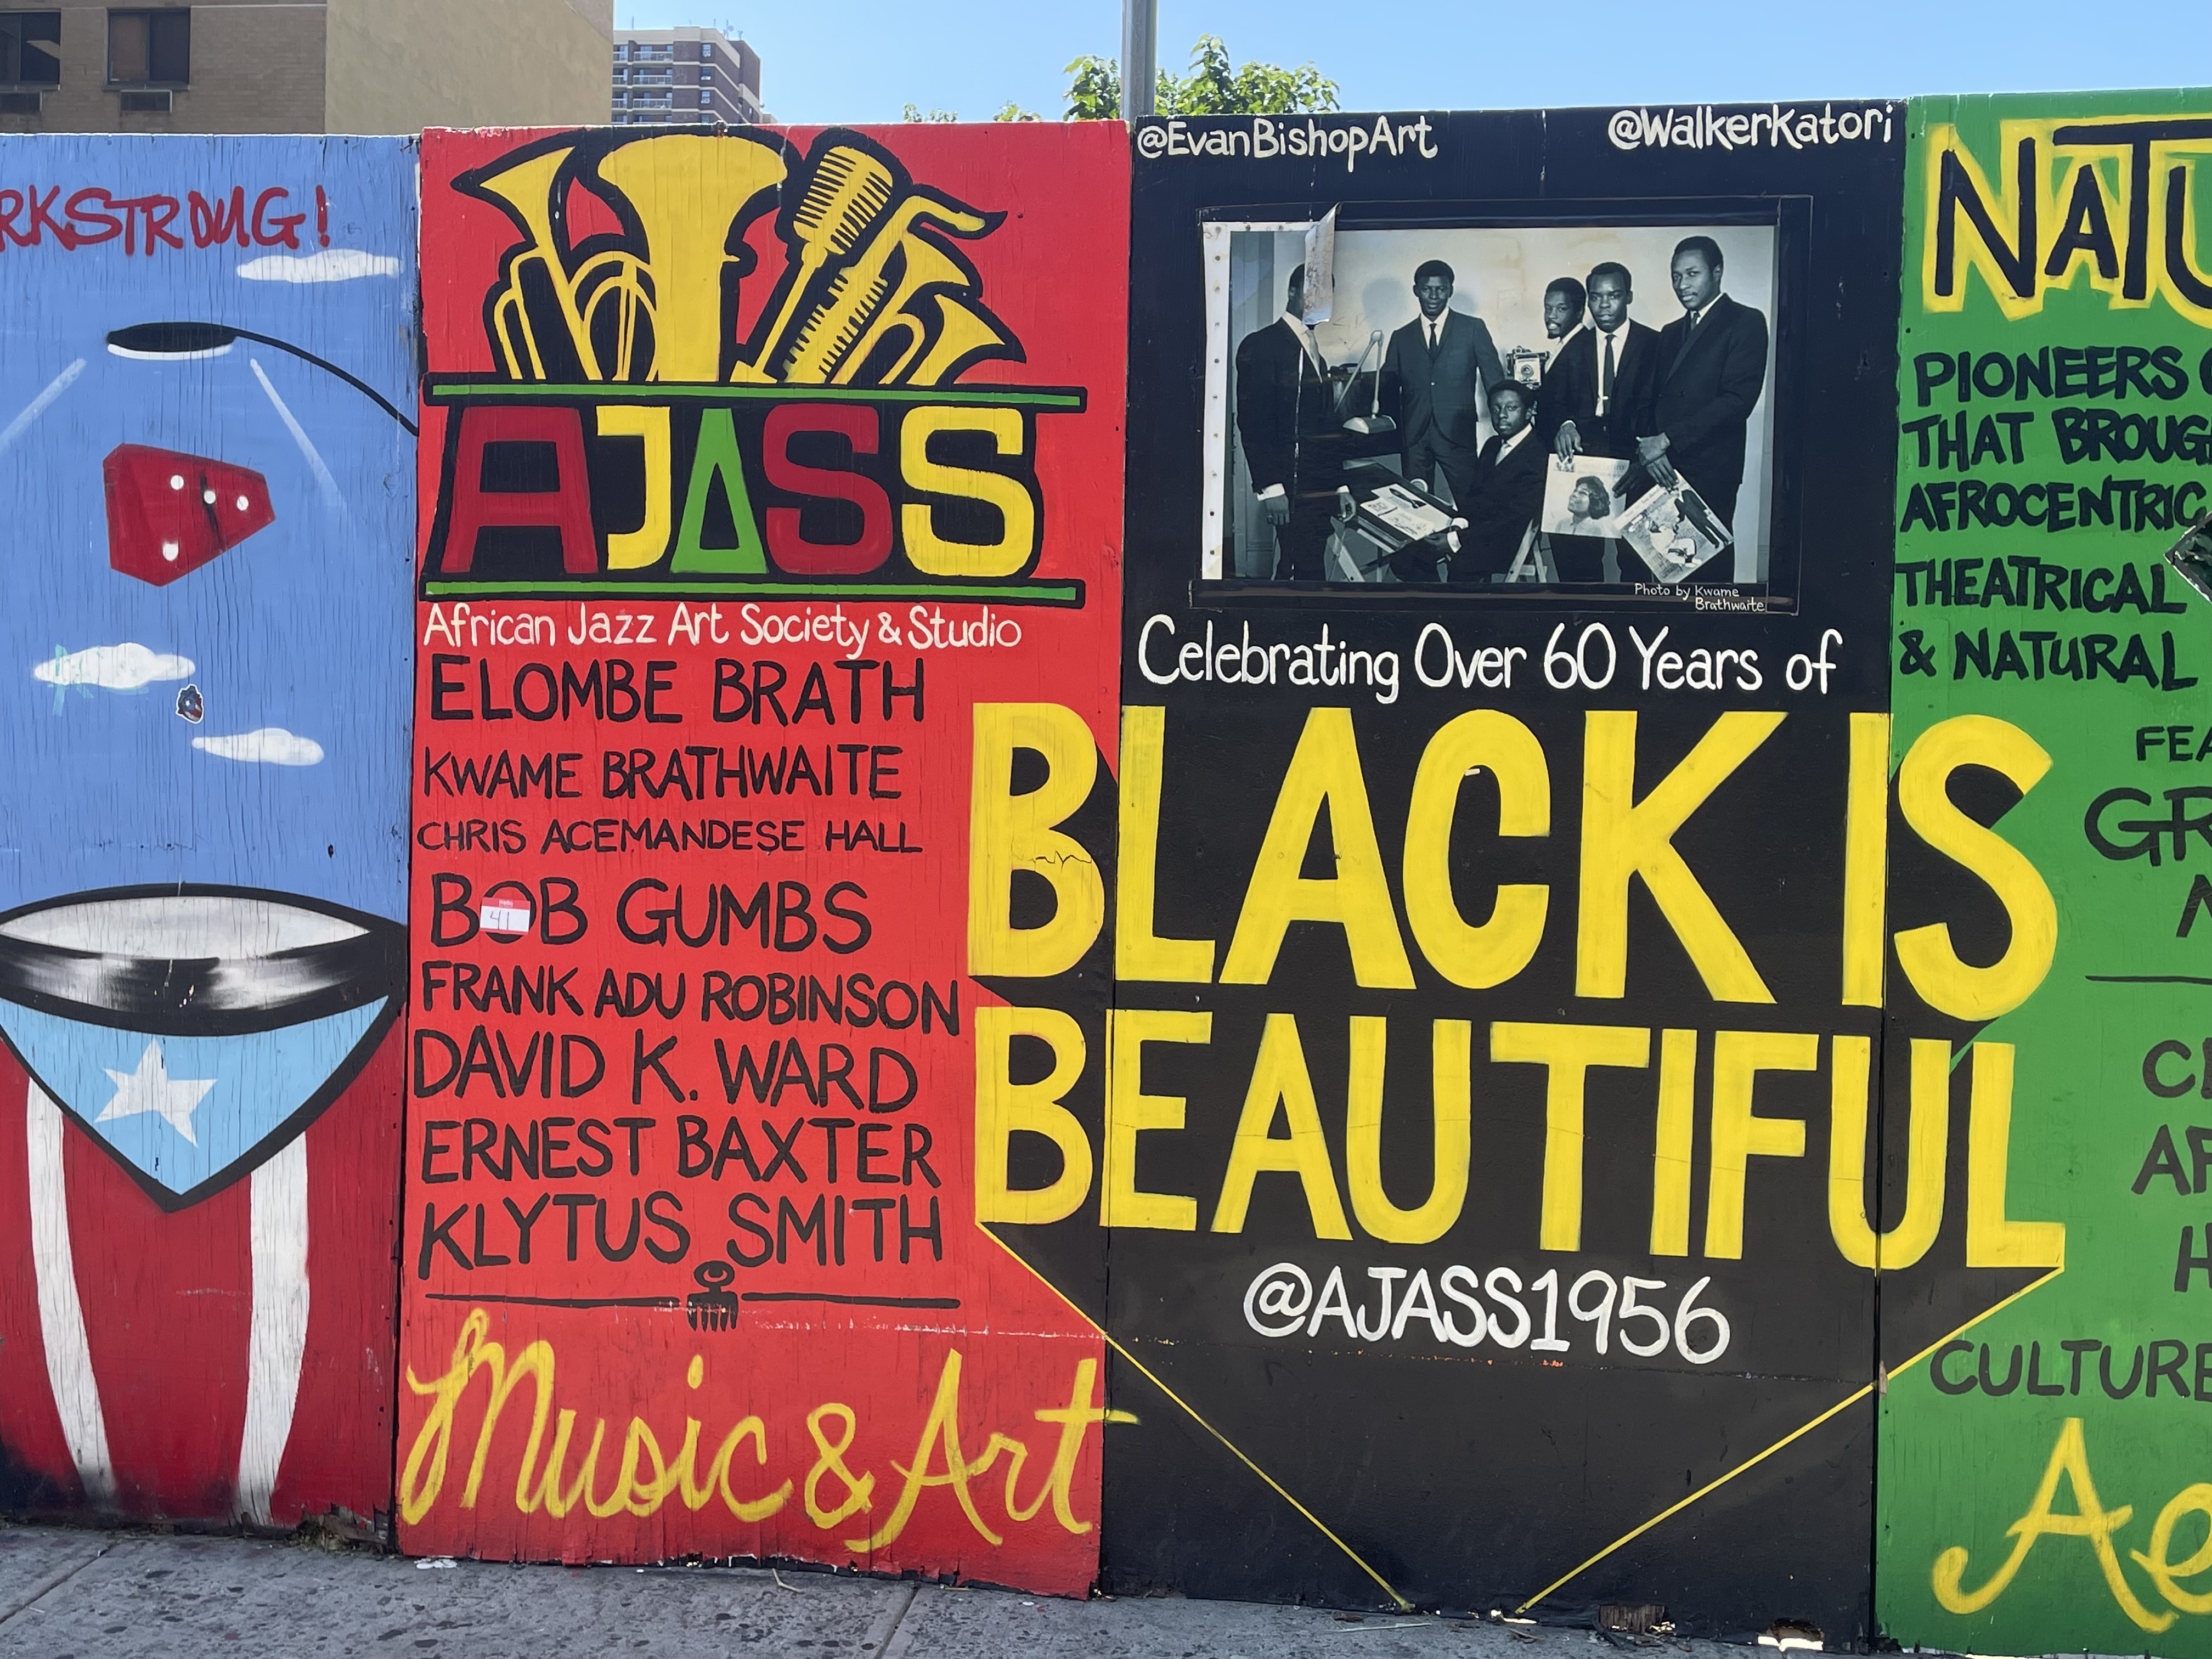 RKSTRONG!
AJASS
African Jazz Art Society & Studio
ELOMBE BRATH
KWAME BRATHWAITE
CHRIS ACEMANDESE HALL
BOB GUMBS
41
FRANK ADU ROBINSON
DAVID K. WARD
ERNEST BAXTER
KLYTUS SMITH
Music & Art
@EvanBishopArt
@WalkerKatori
Photo by Kwame
Brathwaite
Celebrating Over 60 Years of
BLACK IS
BEAUTIFUL
@AJASS1956
NATU
PIONEERS
THAT BROUG
AFROCENTRIC
THEATRICAL
& NATURAL
FEA
GR
CULTURE
Ae